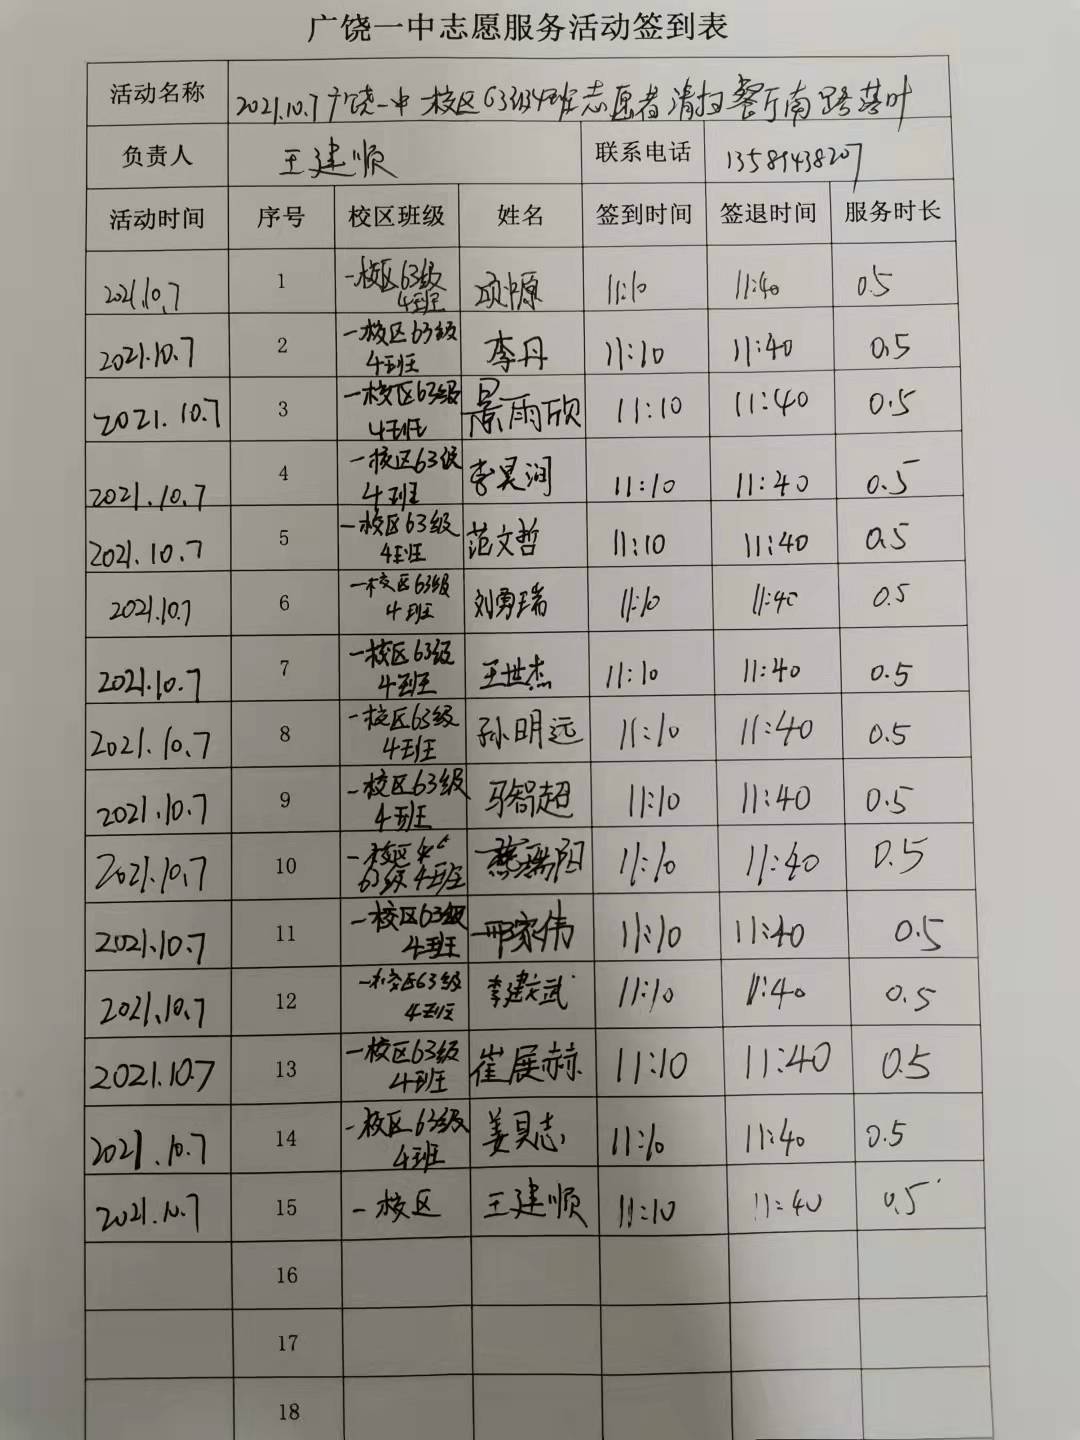 广饶一中志愿服务活动签到表
活动名称 2021.10.7广饶一中一校区63级4班志愿者清扫餐厅南路落叶
负责人 王建顺 联系电话
活动时间 序号 校区班级 姓名 签到时间 签退时间 服务时长
2021.10.7 1 一校区63级 11:10 11:40 0.5
4班
2021.10.7 2 一校区63级 李丹 11:10 11:40 0.5
4班
2021.10.7 3 一校区63级 景雨欣 11:10 11:40 0.5
4班
2021.10.7 4 一校区63级 李昊润 11:10 11:40 0.5
4班
2021.10.7 5 一校区63级 范文哲 11:10 11:40 0.5
4班
2021.10.7 6 一校区63级 刘勇瑞 11:10 11:40 0.5
4班
2021.10.7 7 一校区63级 王世杰 11:10 11:40 0.5
4班
2021.10.7 8 一校区63级 孙明远 11:10 11:40 0.5
4班
2021.10.7 9 一校区63级 马智超 11:10 11:40 0.5
4班
2021.10.7 10 一校区 燕瑞阳 11:10 11:40 0.5
63级4班
2021.10.7 11 一校区63级 邢家伟 11:10 11:40 0.5
4班
2021.10.7 12 一校区63级 李建武 11:10 11:40 0.5
4班
2021.10.7 13 一校区63级 崔展赫 11:10 11:40 0.5
4班
2021.10.7 14 一校区63级 姜昊志 11:10 11:40 0.5
4班
2021.10.7 15 一校区 王建顺 11:10 11:40 0.5
16
17
18